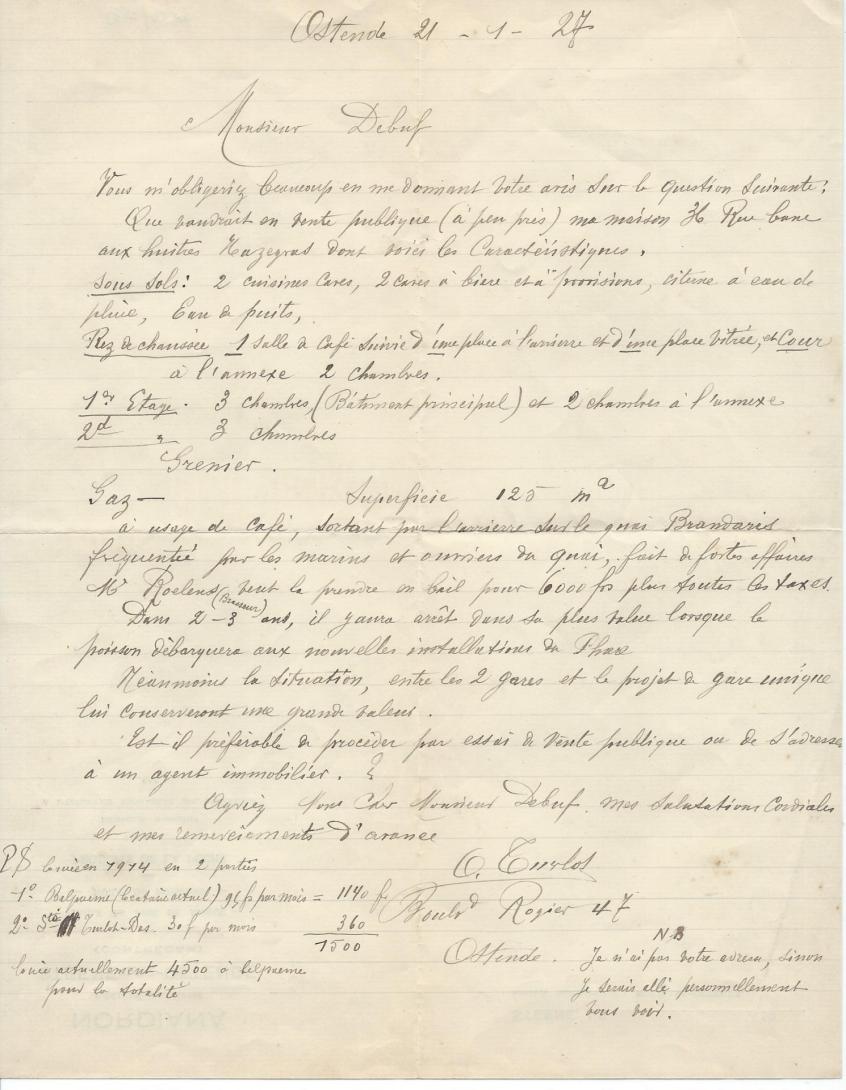 Ostende 21 - 1 - 27
Monsieur Debuf
Vous m'obligeriez beaucoup en me donnant votre avis sur la question suivante :
Que vaudrait en vente publique (à peu près) ma maison Rue banc
aux huitres Hazegras dont voici les Caractéristiques.
Sous Sols : 2 cuisines Caves, 2 caves à biere et à provisions, citerne à eau de
pluie, Eau de puits,
Rez de chaussée 1 Salle de Café suivie d'une place à l'arrierre et d'une place vitrée, et Cour
à l'annexe 2 chambres.
1er Etage. 3 chambres (Bâtiment principal) et 2 chambres à l'annexe
2d " 3 chambres
Grenier.
Gaz — Superficie 125 m2
à usage de Café, sortant par l'arrierre sur le quai Brandaris
fréquentié par les marins et ouvriers du quai, fait de fortes affaires
Mr Roelens (Brasseur) veut la prendre en bail pour 6000 frs plus toutes les taxes.
Dans 2-3 ans, il y aura arrêt dans sa plus value lorsque le
poisson débarquera aux nouvelles installations du Phare
Néanmoins la Situation, entre les 2 gares et le projet de gare unique
lui conserveront une grande valeur.
Est il préférable de procéder par essai de vente publique ou de s'adresser
à un agent immobilier. ?
Agriez Mons Cher Monsieur Debuf mes salutations Cordiales
et mes remerciements d'avance
PS louée en 1914 en 2 parties
1° Belpaeme (locataire actuel) 95 f par mois = 1140 f
2° Sté Turlot-Des. 30 f par mois 360
1500
louée actuellement 4500 à belpaeme
pour la totalité
O. Turlot
Boulvd Rogier 47
Ostende.
NB
Je n'ai pas votre adresse, sinon
je serais allé personnellement
vous voir.
NORDIANA